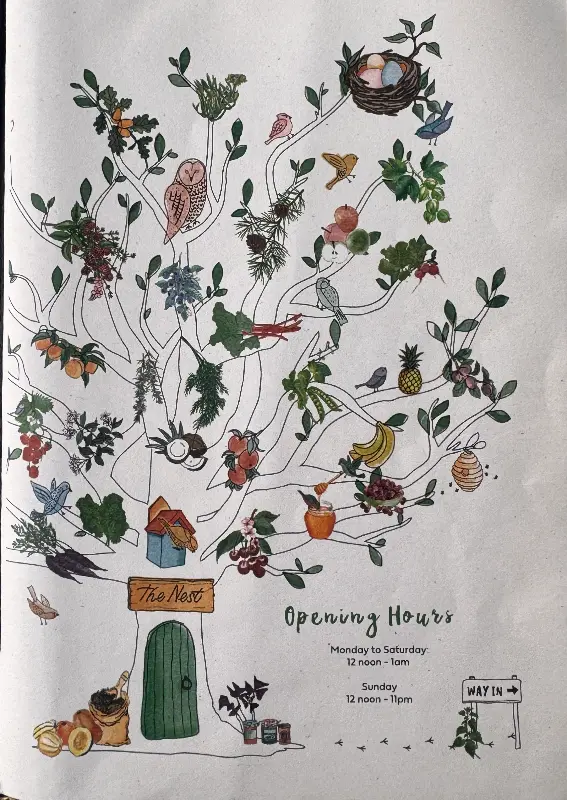 The Nest
Opening Hours
Monday to Saturday:
12 noon - 1am
Sunday
12 noon - 11pm
WAY IN →